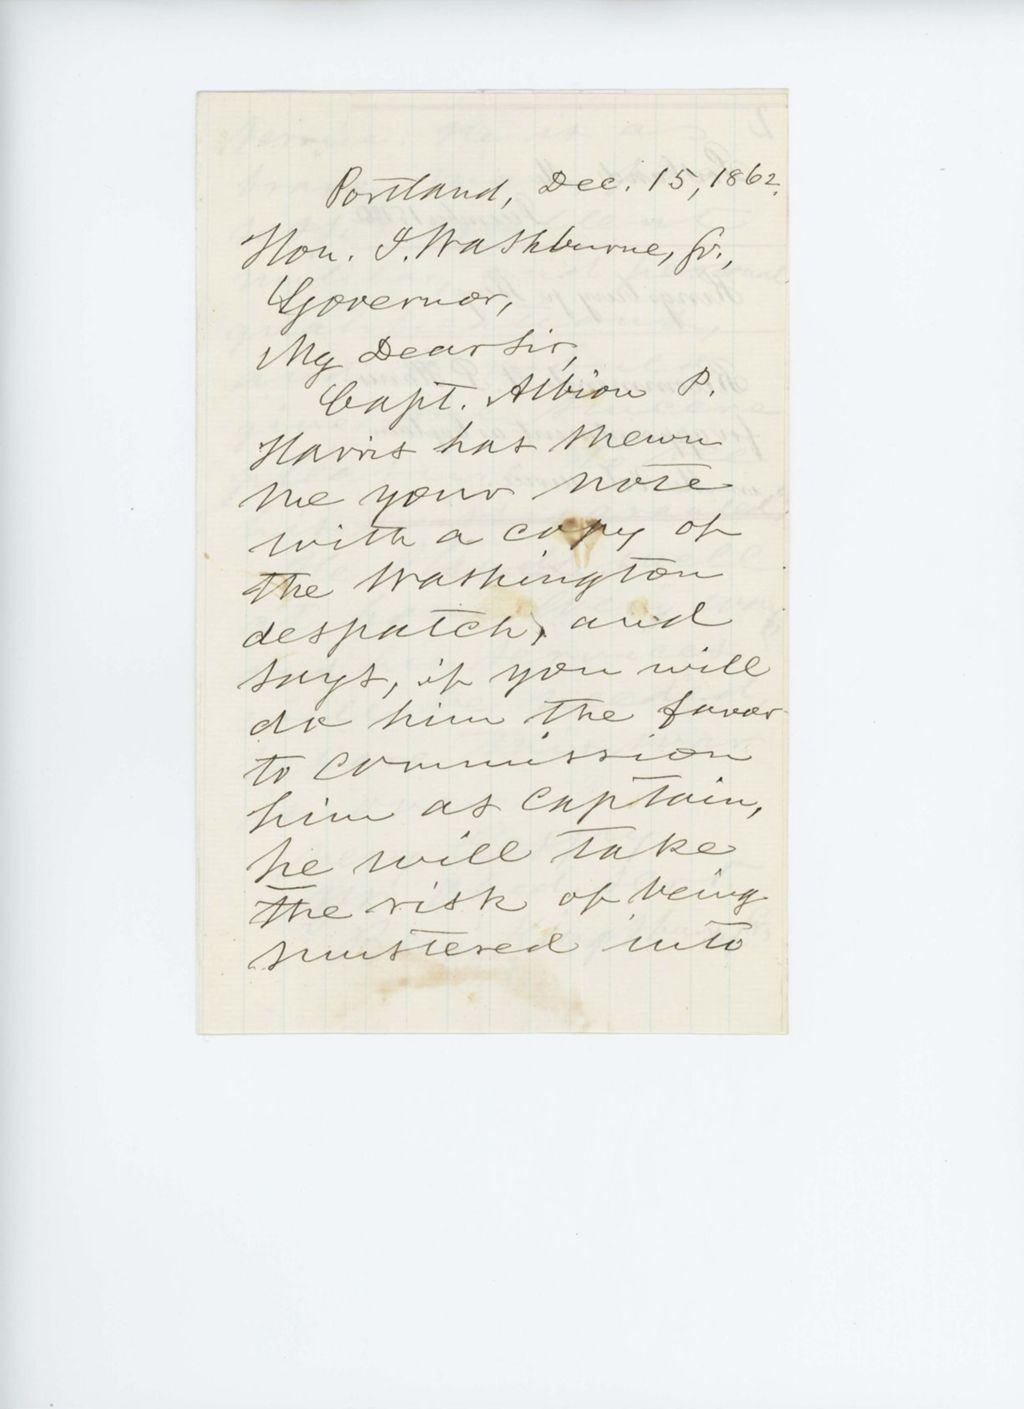 Portland, Dec. 15, 1862.
Hon. I. Washburne, Jr.,
Governor,
My Dear Sir,
Capt. Albion P.
Harris has shewn
me your note
with a copy of
the Washington
despatch, and
says, if you will
do him the favor
to commission
him as Captain,
he will take
the risk of being
mustered into